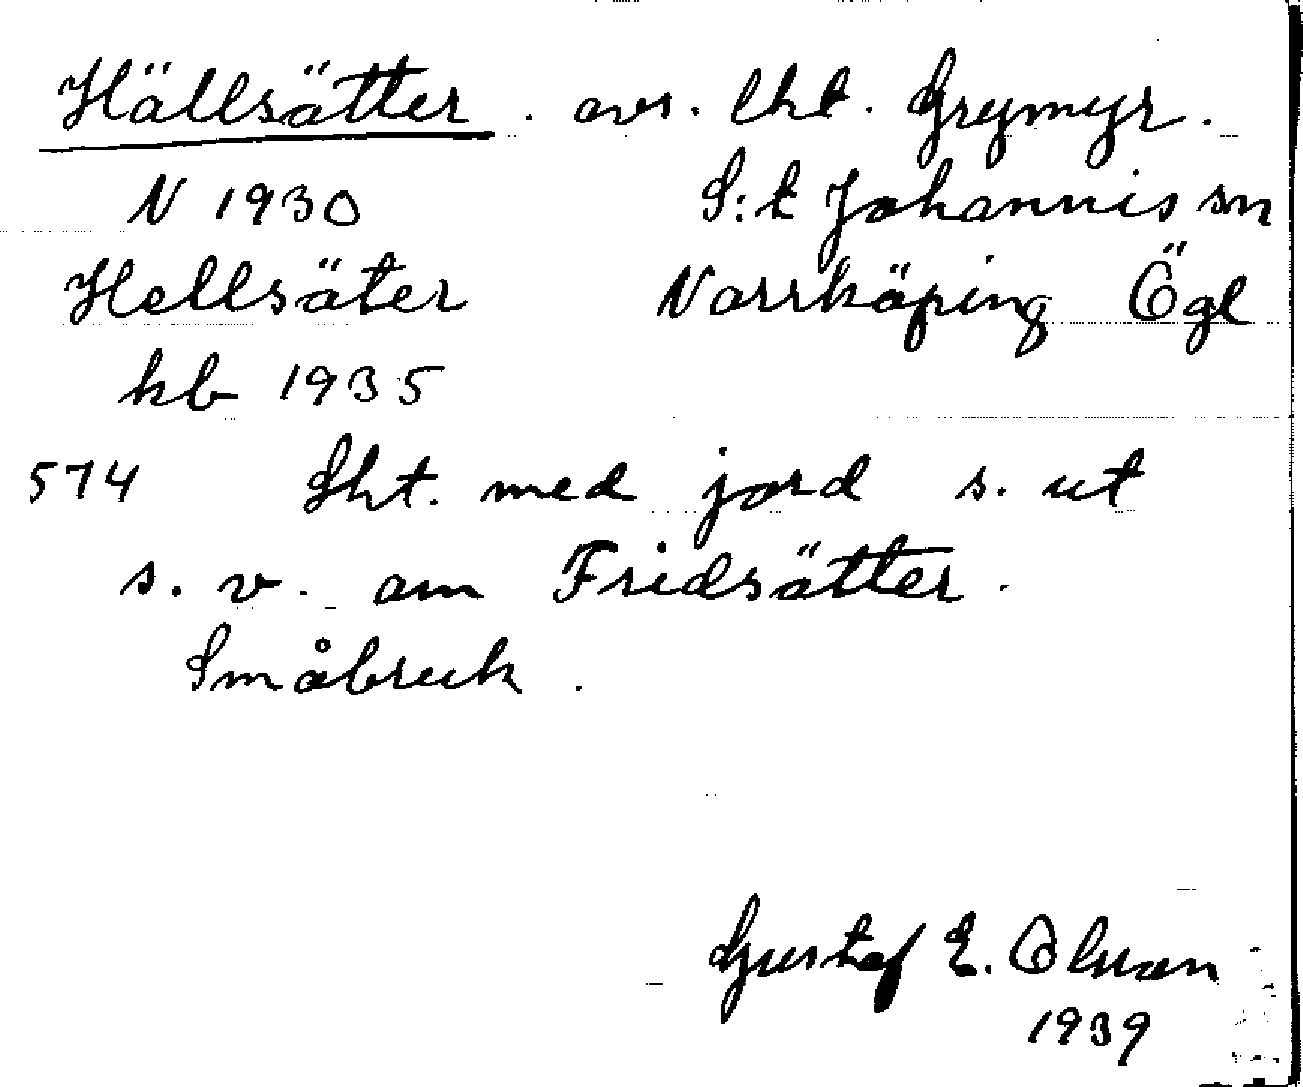 Hällsätter. avs. lht. Grymyr.
N 1930 S:t Johannis sn
Hellsäter Norrköping Ögl
kb 1935
574 Lht. med jord s. ut
s. v. om Fridsätter.
Småbruk.
Gustaf E. Olsson
1939